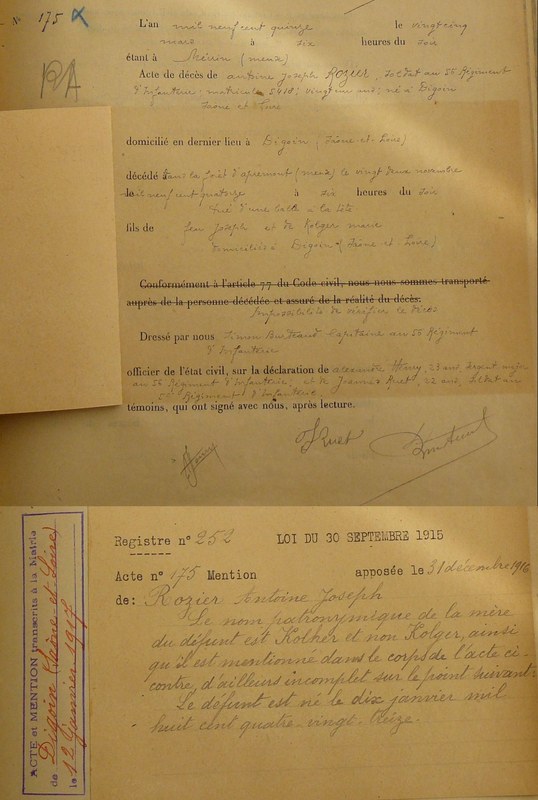 N° 175
RA
L'an mil neuf cent quinze le vingt cinq
mars à six heures du soir
étant à (meuse)
Acte de décès de antoine Joseph Rozier, soldat au 56 Régiment
d'Infanterie; matricule 5418; vingt un ans; né à Digoin
Saône et Loire
domicilié en dernier lieu à Digoin (Saône-et-Loire)
décédé dans la forêt d'apremont (meuse) le vingt deux novembre
mil neuf cent quatorze à six heures du soir
tué d'une balle à la tête
fils de feu Joseph et de Kolger marie
domiciliés à Digoin (Saône et Loire)
Conformément à l'article 77 du Code civil, nous nous sommes transporté
auprès de la personne décédée et assuré de la réalité du décès.
Impossibilité de vérifier le décès
Dressé par nous Simon Bertrand Capitaine au 56 Régiment
d'Infanterie
officier de l'état civil, sur la déclaration de alexandre Henry 23 ans, sergent
au 56 Régiment d'Infanterie; et de Joannès Huet, 22 ans, soldat au
56 Régiment d'Infanterie
témoins, qui ont signé avec nous, après lecture.
Henry
J Huet
Registre n° 252 LOI DU 30 SEPTEMBRE 1915
Acte n° 175 Mention apposée le 31 décembre 1916
de: Rozier Antoine Joseph
Le nom patronymique de la mère
du défunt est Kolher et non Kolger, ainsi
qu'il est mentionné dans le corps de l'acte ci-
contre, d'ailleurs incomplet sur le point suivant:
Le défunt est né le dix janvier mil
huit cent quatre-vingt-treize.
ACTE et MENTION transcrits à la Mairie
de Digoin (Saône et Loire)
le 12 Janvier 1917